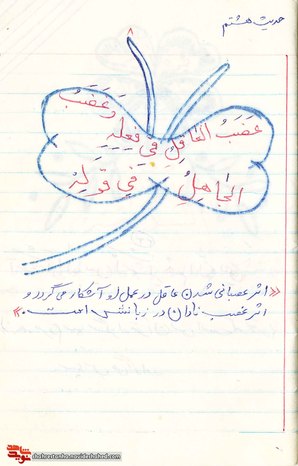 حدیث هشتم
۸
غَضَبُ العَاقِلِ فِي فِعلِهِ وَ غَضَبُ
الجَاهِلِ فِي قَولِهِ
«اثر عصبانی شدن عاقل در عمل او آشکار می گردد و
اثر غضب نادان در زبانش است.»
shohreatonha.navideshahed.com